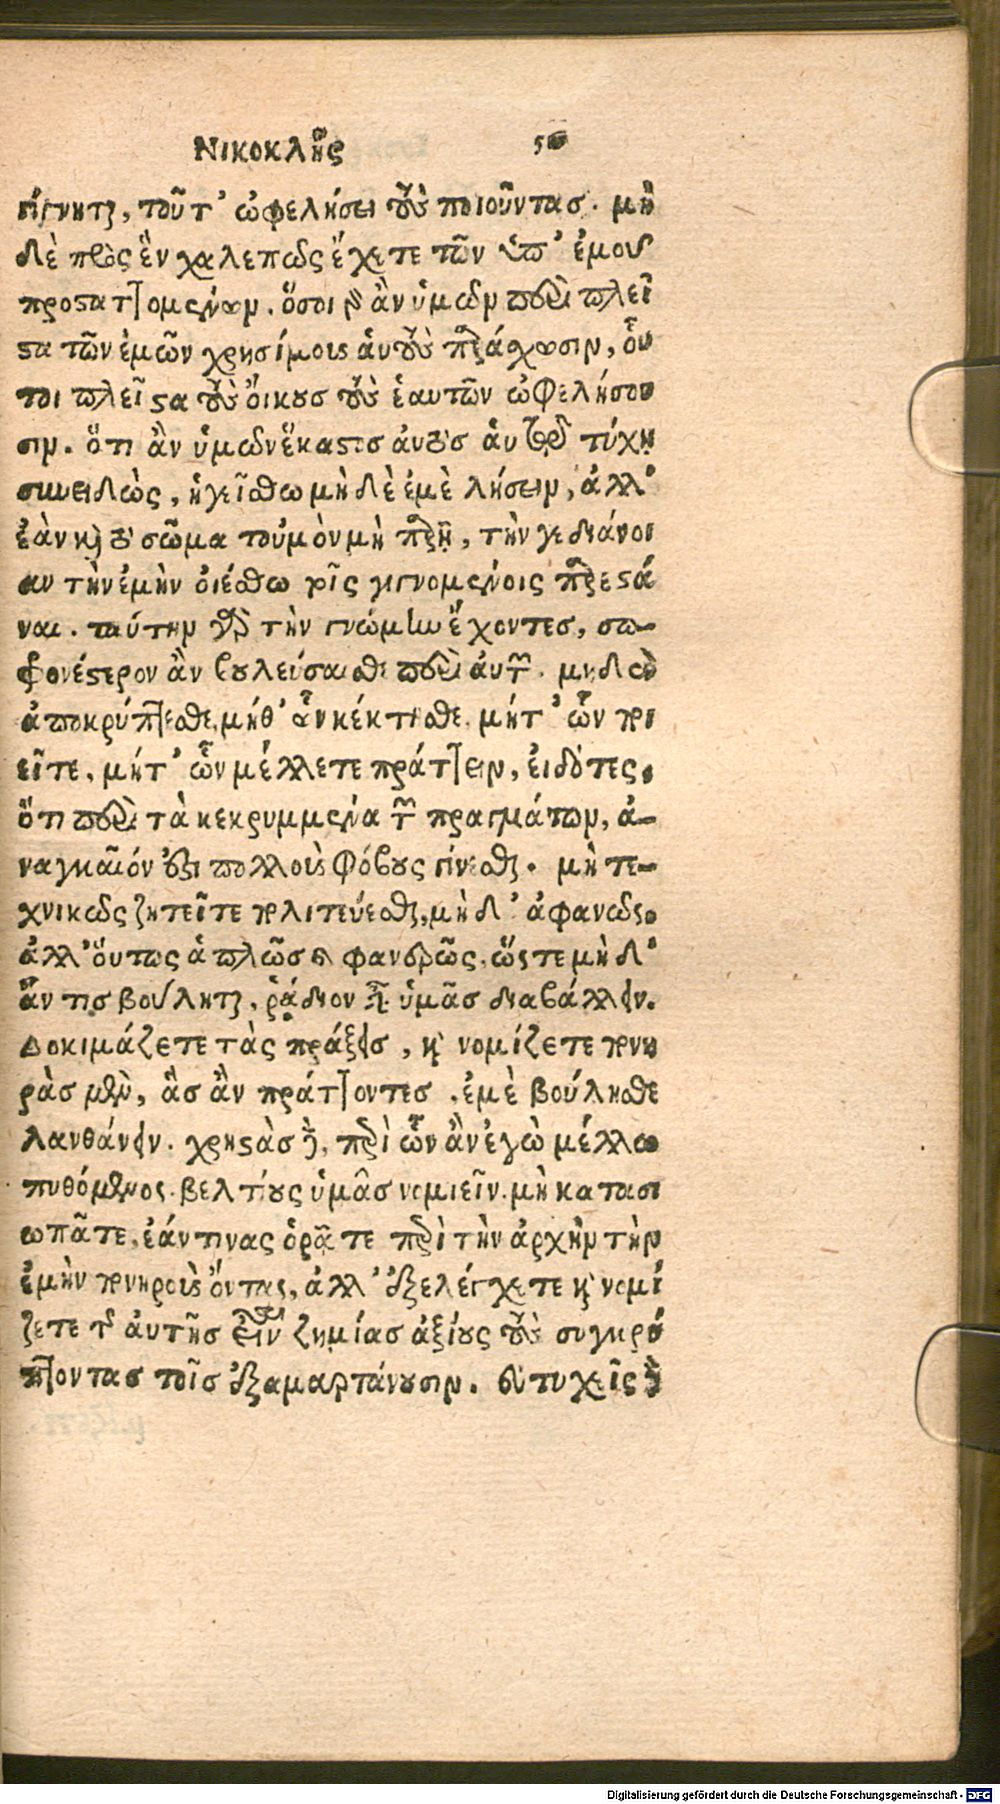 Νικοκλῆς 5
γίγνηται, τοῦτ' ὠφελήσει τοὺς ποιοῦντας. μη
δὲ πρὸς ἓν χαλεπῶς ἔχετε τῶν ὑπ' ἐμοῦ
προσαττομένων. ὅσοι γὰρ ἂν ὑμῶν περὶ πλεῖ
στα τῶν ἐμῶν χρησίμους αὑτοὺς παράσχωσιν, οὗ
τοι πλεῖστα τοὺς οἴκους τοὺς ἑαυτῶν ὠφελήσου
σιν. ὅτι ἂν ὑμῶν ἕκαστος αὐτὸς αὑτῷ τύχῃ
συνειδὼς, ἡγείσθω μὴ δὲ ἐμὲ λήσειν, ἀλλ'
ἐὰν καὶ τὸ σῶμα τοὐμὸν μὴ παρῇ, τὴν γε διάνοι
αν τὴν ἐμὴν οἰέσθω τοῖς γιγνομένοις παρεστά
ναι. ταύτην γὰρ τὴν γνώμην ἔχοντες, σω-
φρονέστερον ἂν βουλεύσαισθε περὶ αὐτῶν. μηδὲν
ἀποκρύπτεσθε, μήθ' ὧν κέκτησθε, μήτ' ὧν ποι
εῖτε, μήτ' ὧν μέλλετε πράττειν, εἰδότες,
ὅτι περὶ τὰ κεκρυμμένα τῶν πραγμάτων, ἀ-
ναγκαῖόν ἐστι πολλοὺς φόβους γίνεσθαι. μὴ τε-
χνικῶς ζητεῖτε πολιτεύεσθαι, μὴ δ' ἀφανῶς,
ἀλλ' οὕτως ἁπλῶς καὶ φανερῶς, ὥστε μὴ δ'
ἄν τις βούληται, ῥάδιον εἶναι ὑμᾶς διαβάλλειν.
Δοκιμάζετε τὰς πράξεις, καὶ νομίζετε πονη
ρὰς μὲν, ἃς ἂν πράττοντες, ἐμὲ βούλησθε
λανθάνειν. χρηστὰς δὲ, περὶ ὧν ἂν ἐγὼ μέλλω
πυθόμενος, βελτίους ὑμᾶς νομιεῖν. μὴ κατασι
ωπᾶτε, ἐάν τινας ὁρᾶτε περὶ τὴν ἀρχὴν τὴν
ἐμὴν πονηροὺς ὄντας, ἀλλ' ἐξελέγχετε καὶ νομί
ζετε τῆς αὐτῆς εἶναι ζημίας ἀξίους τοὺς συγκρύ
πτοντας τοῖς ἐξαμαρτάνουσιν. εὐτυχεῖς δὲ
Digitalisierung gefördert durch die Deutsche Forschungsgemeinschaft - DFG